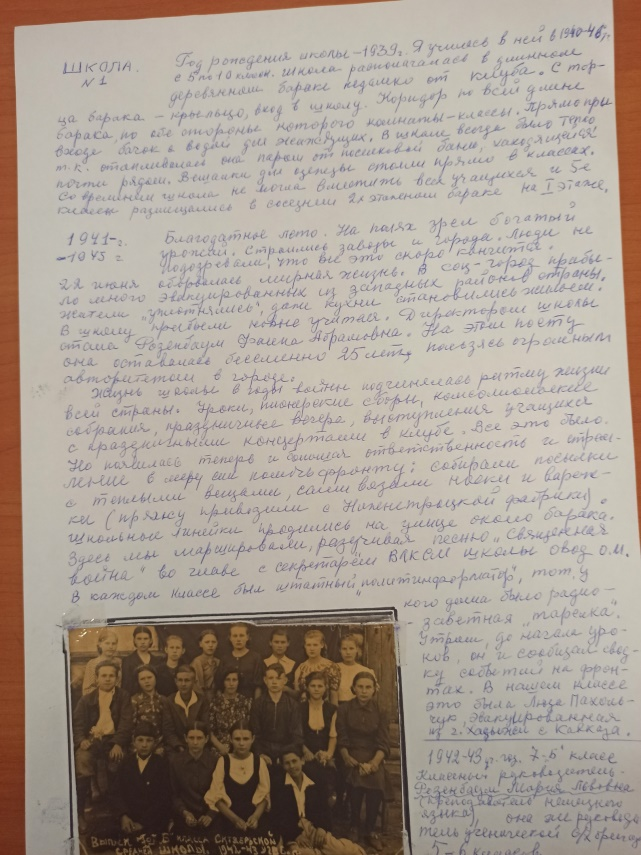 ШКОЛА.
№1
Год рождения школы – 1939 г. Я учился в ней в 1940-46 г.
с 5 по 10 класс. Школа располагалась в длинном
деревянном бараке недалеко от клуба. С тор-
ца барака – крыльцо, вход в школу. Коридор по всей длине
барака по обе стороны которого комнаты-классы. Прямо при
входе бачок с водой для жаждущих. В школе всегда было тепло
т.к. отапливалась она паром от поселковой бани, находящейся
почти рядом. Вешалки для одежды стояли прямо в классах.
Со временем школа не могла вместить всех учащихся и 5-е
классы размещались в соседнем 2х этажном бараке на I этаже.
1941-г.
-1945 г
Благодатное лето. На полях зрел богатый
урожай. Строились заводы и города. Люди не
подозревали, что все это скоро кончится.
22 июня оборвалась мирная жизнь. В соц-город прибы-
ло много эвакуированных из западных районов страны.
Жители „уплотнялись", даже кухни становились жильем.
В школу прибыли новые учителя. Директором школы
стала Розенбаум Фаина Абрамовна. На этом посту
она оставалась бессменно 25 лет, пользуясь огромным
авторитетом в городе.
Жизнь школы в годы войны подчинялась ритму жизни
всей страны. Уроки, пионерские сборы, комсомольские
собрания, праздничные вечера, выступления учащихся
с праздничными концертами в клубе. Все это было.
Но появилась теперь и большая ответственность и стрем-
ление в меру сил помочь фронту: собирали посылки
с теплыми вещами, сами вязали носки и вареж-
ки (пряжу привозили с фабрики).
Школьные линейки проводились на улице около барака.
Здесь мы маршировали, разучивая песню „Священная
война" во главе с секретарём ВЛКСМ школы Овод О.М.
В каждом классе был штатный „политинформатор", тот, у
кого дома было радио-
заветная „тарелка".
Утром, до начала уро-
ков, он и сообщал свод-
ку событий на фрон-
тах. В нашем классе
это была Люда Пахоль-
чук, эвакуированная
из г. с Кавказа.
1942-43 г. 7 „Б" класс
Классный руководитель-
Мария Львовна
(преподаватель немецкого
языка), она же руководи-
тель ученической с/х бригад
в колхозе
Выпуск 7го „Б" класса Октябрьской
средней школы. 1942-43 уч. г.